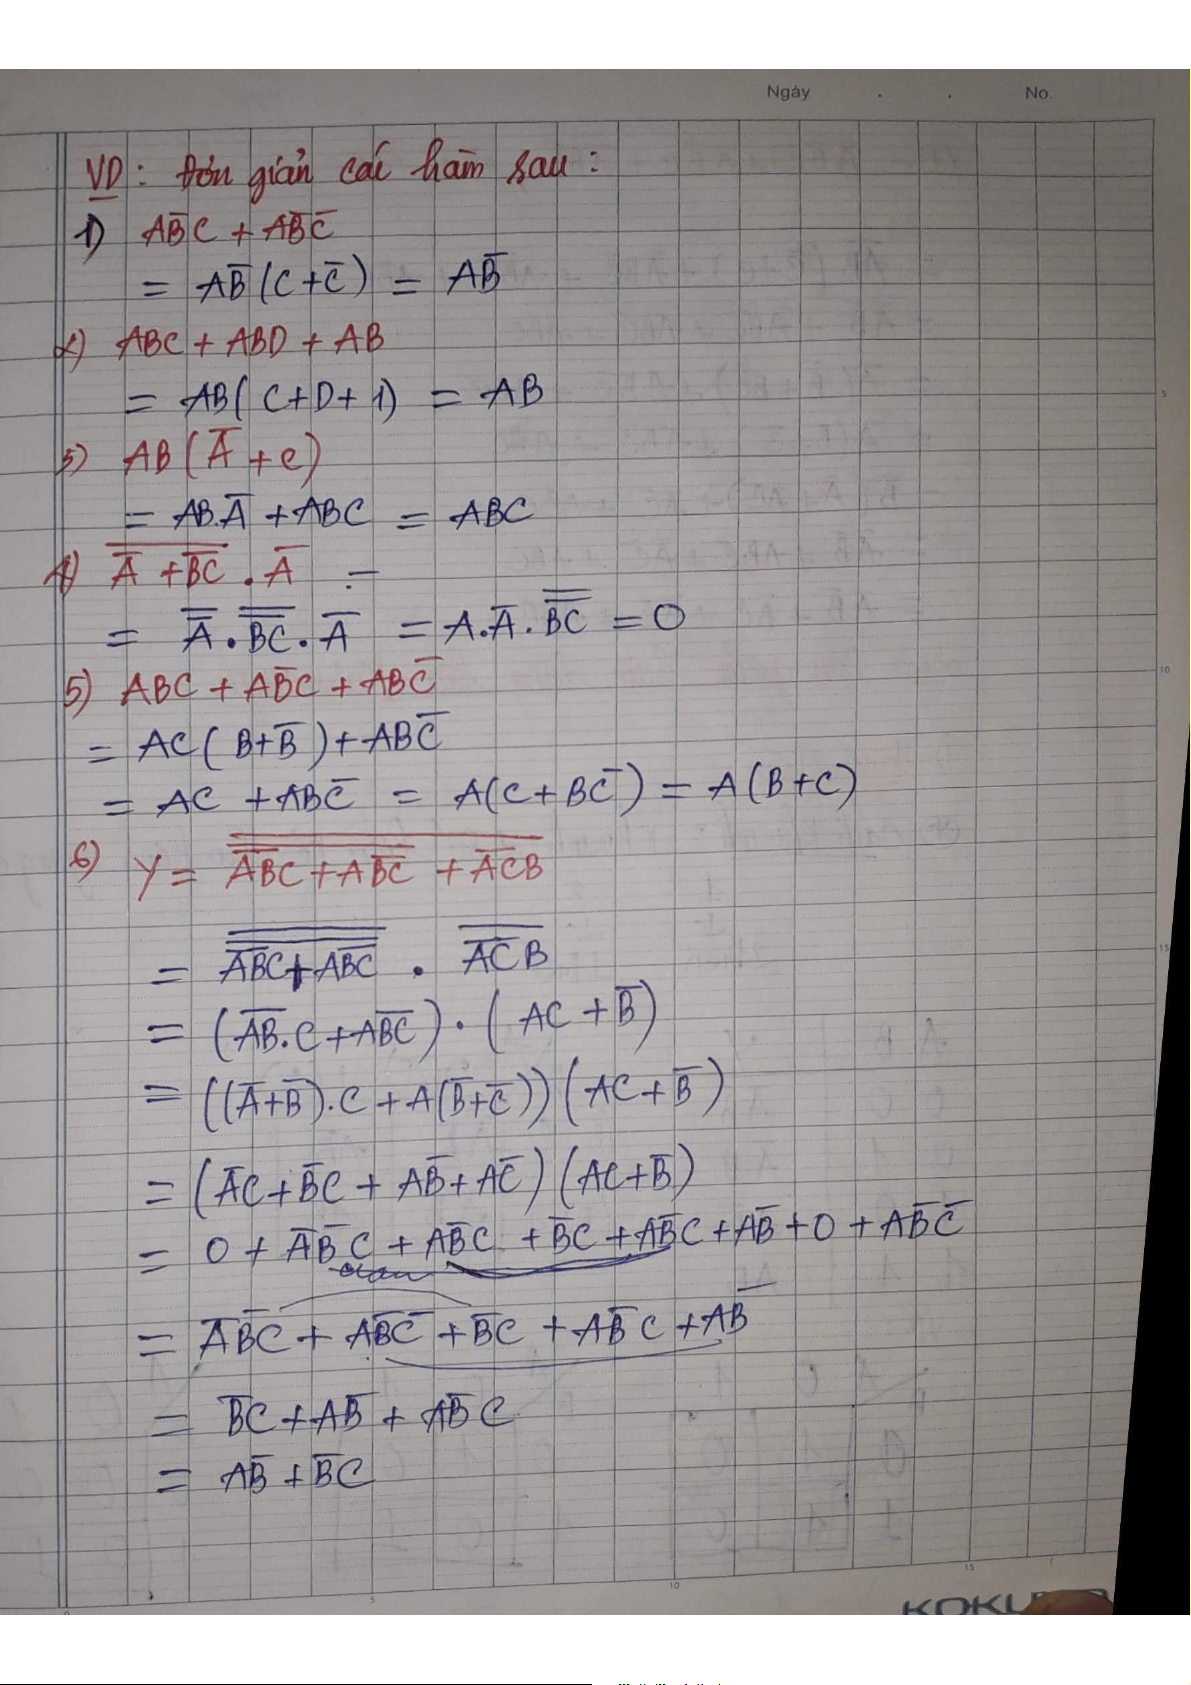 Ngày . . No.
VD : Đơn giản các hàm sau :
1) AB̅C + AB̅C̅
= AB̅(C+C̅) = AB̅
2) ABC + ABD + AB
= AB(C+D+1) = AB
3) AB(A̅+C)
= AB.A̅ + ABC = ABC
4) \overline{\overline{A} + \overline{BC}} . A̅ =
= \overline{\overline{A}} . \overline{\overline{BC}} . A̅ = A.A̅.\overline{\overline{BC}} = 0
5) ABC + AB̅C + ABC̅
= AC(B+B̅)+ABC̅
= AC + ABC̅ = A(C+BC̅) = A(B+C)
6) Y = \overline{\overline{\overline{AB}C + A\overline{BC}} + \overline{AC}B}
= \overline{\overline{\overline{AB}C+A\overline{BC}}} . \overline{\overline{AC}B}
= (\overline{AB}.C + A\overline{BC}) . (AC + B̅)
= ((A̅+B̅).C + A(B̅+C̅))(AC+B̅)
= (A̅C+B̅C + AB̅+AC̅)(AC+B̅)
= 0 + A̅B̅C + AB̅C + B̅C + AB̅C + AB̅ + 0 + AB̅C̅
= A̅B̅C + AB̅C̅ + B̅C + AB̅C + AB̅
= B̅C + AB̅ + AB̅C
= AB̅ + B̅C
5
10
15
5
10
15